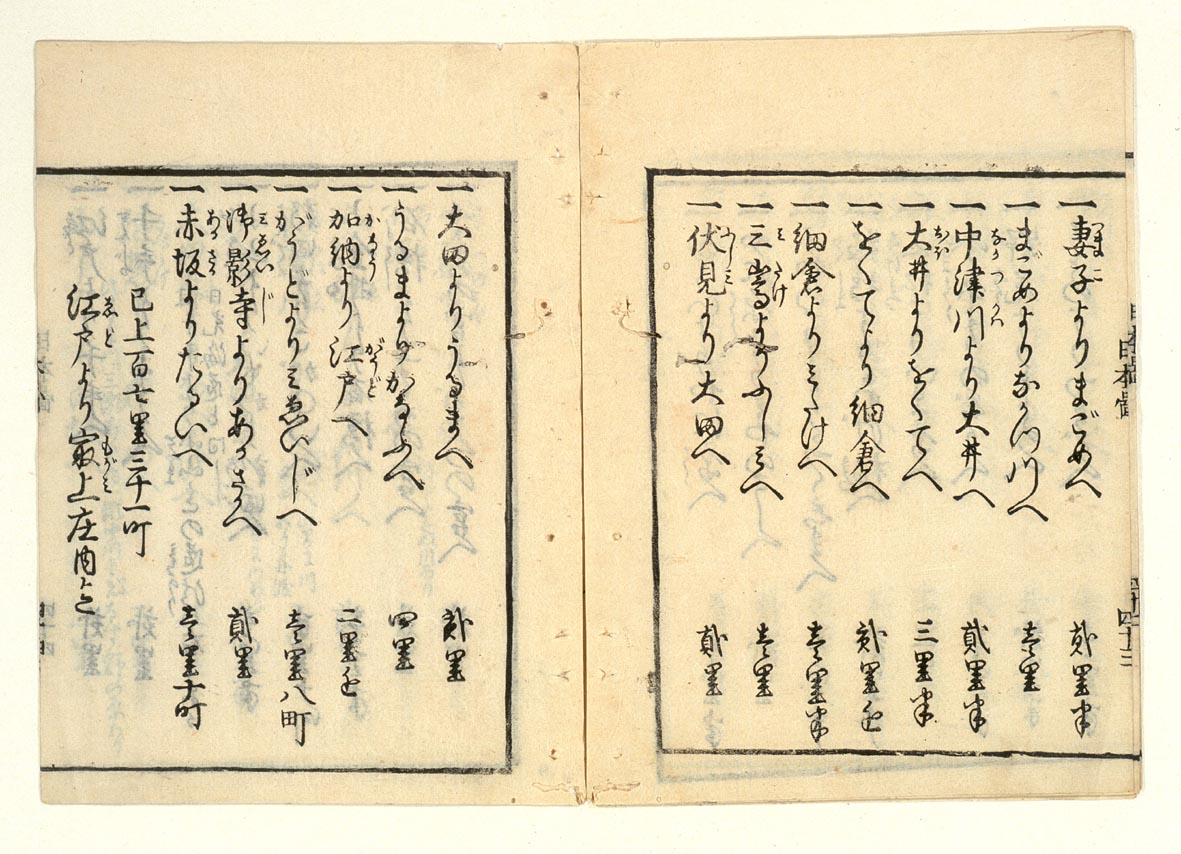 一 妻子よりまごめへ 弐里半
一 まごめよりなか川へ 壱里
一 中津川より大井へ 弐里半
一 大井よりをくてへ 三里半
一 をくてより細倉へ 弐里
一 細倉よりみたけへ 壱里半
一 三嵩よりふしみへ 壱里
一 伏見より大田へ 弐里
一 大田よりうるまへ 弐里
一 うるまよりかなふへ 四里
一 加納より江戸へ 二里
一 がうどよりみゑいじへ 壱里八町
一 御影寺よりあかさかへ 弐里
一 赤坂よりたるいへ 壱里十町
已上一百七里三十一町
江戸より最上庄内